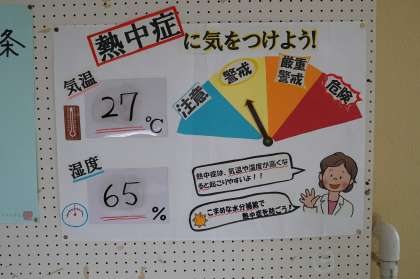 条
熱中症に気をつけよう!
気温
27℃
湿度
65%
注意
警戒
厳重
警戒
危険
熱中症は、気温や湿度が高くな
ると起こりやすいよ!!
こまめな水分補給で
熱中症を防ごう!